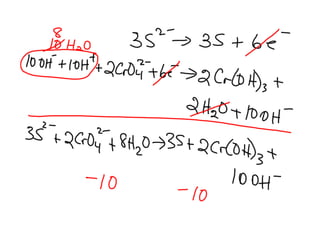 8
10 H₂O 3S²⁻ → 3S + 6e⁻
10OH⁻ + 10H⁺ + 2CrO₄²⁻ + 6e⁻ → 2Cr(OH)₃ +
2H₂O + 10OH⁻
3S²⁻ + 2CrO₄²⁻ + 8H₂O → 3S + 2Cr(OH)₃ +
10OH⁻
-10 -10